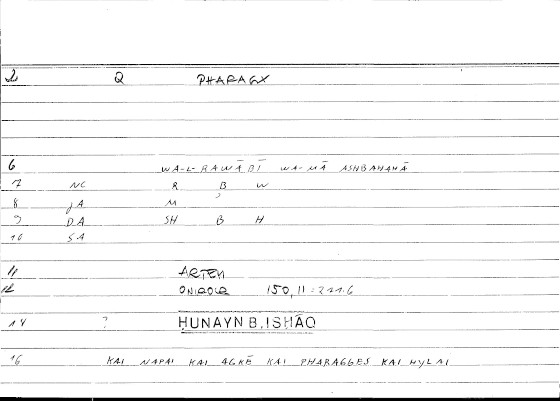 2 Q PHARAGX
6 WA-L-RAWĀBĪ WA-MĀ ASHBAHAHĀ
7 NC R B W
8 JA M ʾ
9 DA SH B H
10 SA
11 ARTEM
12 ONIROCR 150,11=211.6
14 ? HUNAYN B. ISHĀQ
16 KAI NAPAI KAI AGKĒ KAI PHARAGGES KAI HYLAI